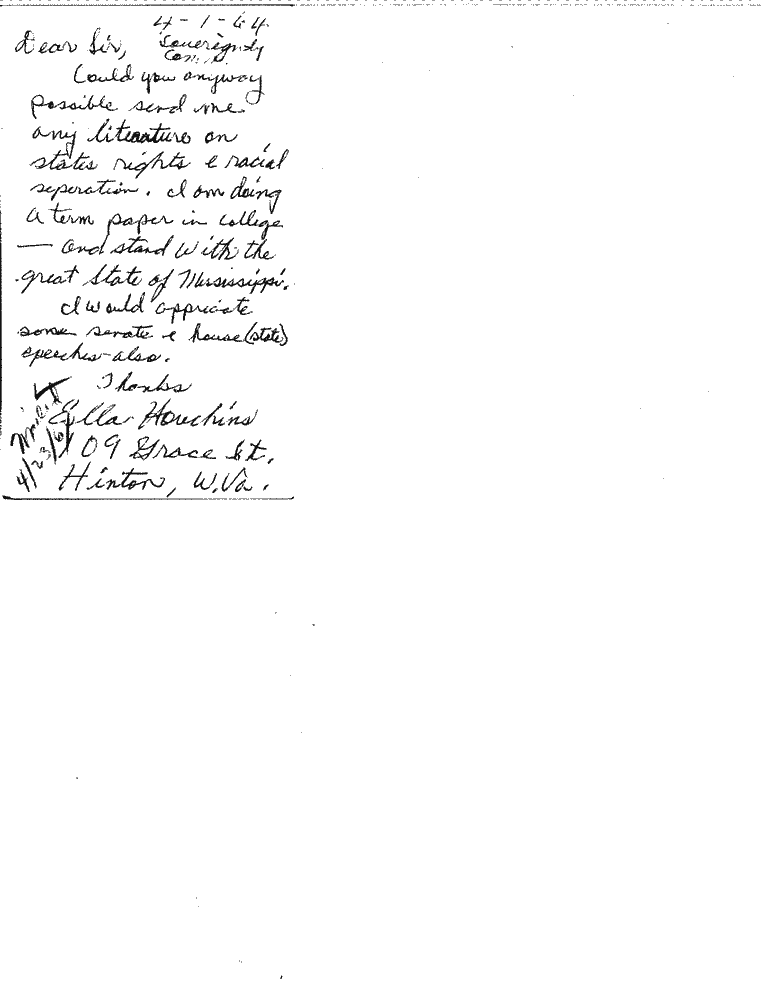 4-1-64
Dear Sir, Sovereignty
Com.
Could you anyway
possible send me
any literature on
states rights & racial
seperation. I am doing
a term paper in college
— and stand with the
great State of Mississippi.
I would appriciate
some senate & house (state)
speeches - also.
Thanks
Ella Houchins
109 Grace St.
Hinton, W.Va.
Mailed
4/23/64